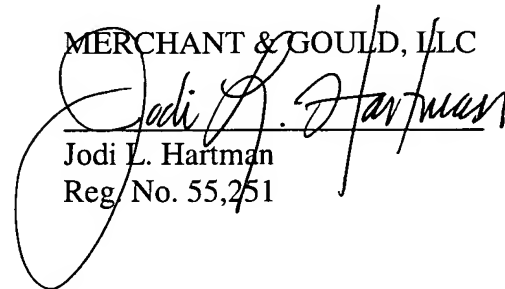 MERCHANT & GOULD, LLC
Jodi L. Hartman
Jodi L. Hartman
Reg. No. 55,251